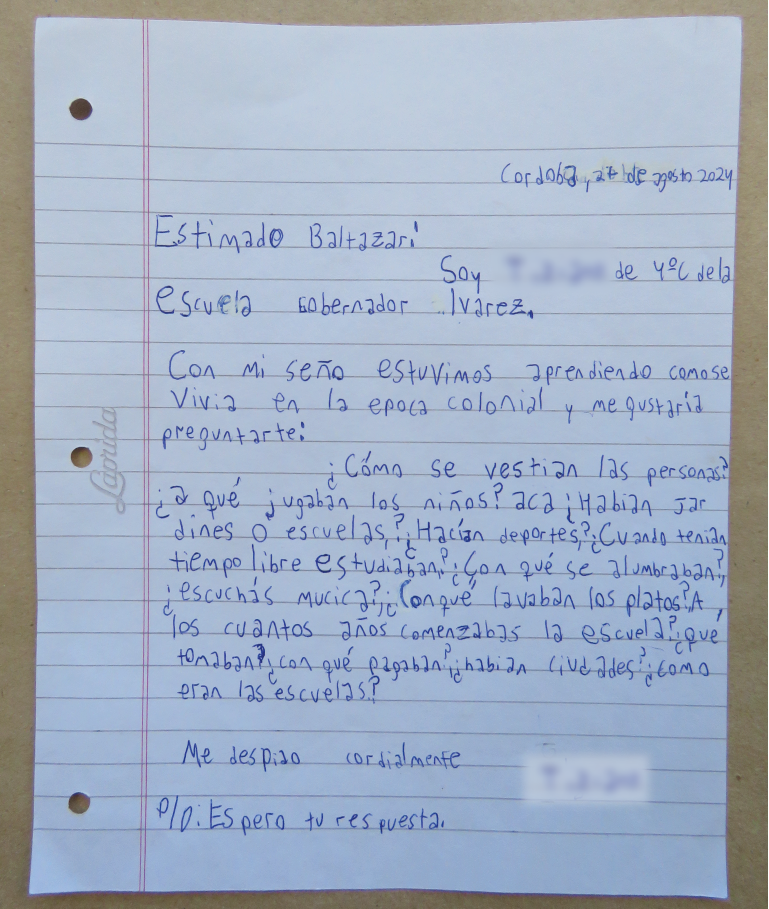 Cordoba, 27 de agosto 2024
Estimado Baltazar:
Soy de 4ºC dela
escuela Gobernador Ivarez.
Con mi seño estuvimos aprendiendo comose
vivia en la epoca colonial y me gustaría
preguntarte:
¿Cómo se vestian las personas?
¿a qué jugaban los niños? aca ¿Habian Jar
dines o escuelas,?¿Hacían deportes,?¿Cuando tenian
tiempo libre estudiaban?¿Con qué se alumbraban?,
¿escuchás mucica?,¿Conqué lavaban los platos?A,
los cuantos años comenzabas la escuela?¿qué
tomaban?¿con qué pagaban?¿habian ciudades?¿como
eran las escuelas?
Me despido cordialmente
P/D: Espero tu respuesta.
Laprida